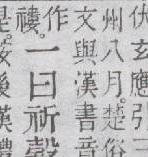 伏玄應引三
州八月。楚俗
文與漢書音
作
褸。
一曰祈穀
是。後漢禮